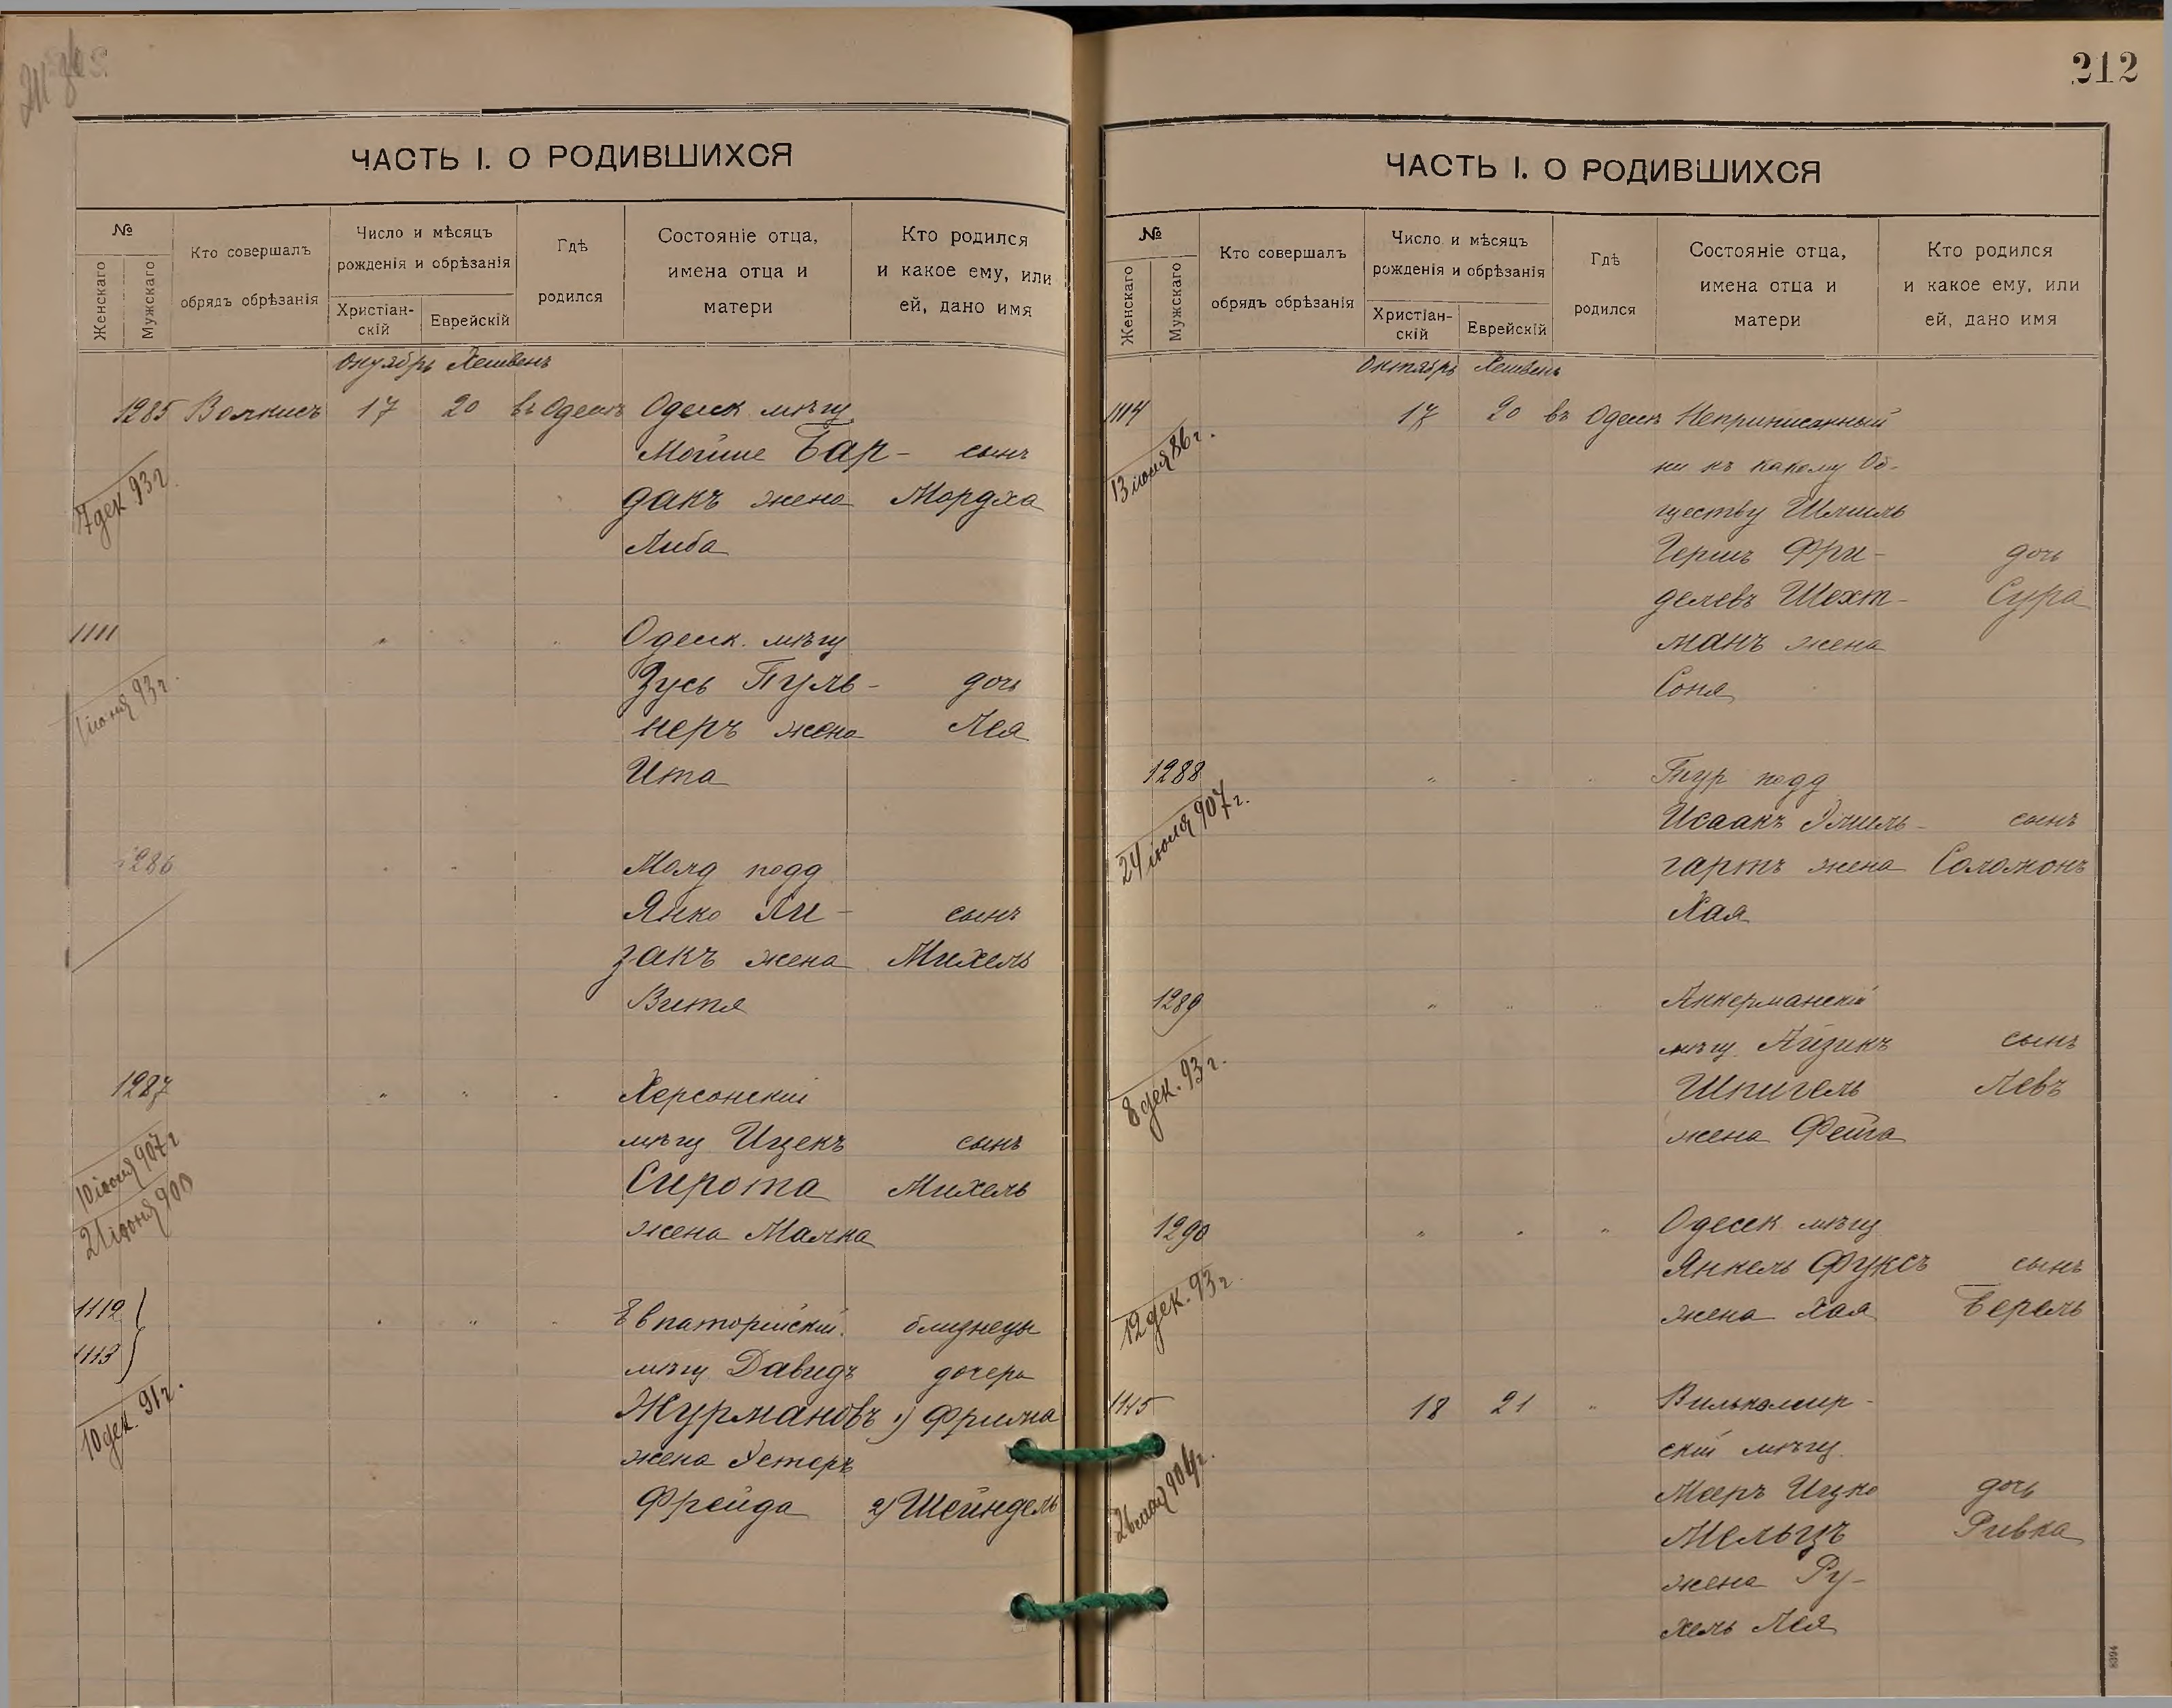 ЧАСТЬ I. О РОДИВШИХСЯ
№
Женскаго
Мужскаго
Кто совершалъ
обрядъ обрѣзанія
Число и мѣсяцъ
рожденія и обрѣзанія
Христіан-
скій
Еврейскій
Гдѣ
родился
Состояніе отца,
имена отца и
матери
Кто родился
и какое ему, или
ей, дано имя
Октябрь Хешвенъ
1285 17 20 въ Одессѣ Одесск мѣщ
Мойше Бар- сынъ
дакъ жена Мордха
Либа
7 дек 93 г.
1111 Одесск. мѣщ
Зусь Пуль- дочь
неръ жена Лея
Ита
1 іюня 93 г.
1286 Молд подд
Янко Ли- сынъ
закъ жена Михель
Витя
1287 Херсонскій
мѣщ Ицекъ сынъ
Сирота Михель
жена Малка
10 іюля 907 г
21 іюня 900
1112
1113
Евпаторійскій близнецы
мѣщ Давидъ дочери
Журмановъ 1) Фрима
жена Эстеръ
Фрейда 2) Шейндель
10 дек. 91 г.
212
ЧАСТЬ I. О РОДИВШИХСЯ
№
Женскаго
Мужскаго
Кто совершалъ
обрядъ обрѣзанія
Число и мѣсяцъ
рожденія и обрѣзанія
Христіан-
скій
Еврейскій
Гдѣ
родился
Состояніе отца,
имена отца и
матери
Кто родился
и какое ему, или
ей, дано имя
Октябрь Хешвенъ
1114 17 20 въ Одессѣ Неприписанный
ни къ какому Об-
ществу Шмиль
Гершъ Фри- дочь
делевъ Шехт- Сура
манъ жена
Соня
13 іюня 86 г.
1288 Тур подд
Исаакъ Эпиль- сынъ
гартъ жена Соломонъ
Хая
24 іюля 907 г.
1289 Аккерманскій
мѣщ Айзикъ сынъ
Шпигель Левъ
жена Фейга
8 дек. 93 г.
1290 Одесск мѣщ
Янкель Фуксъ сынъ
жена Хая Берель
12 дек. 93 г
1115 18 21 Вилькомир-
скій мѣщ
Мееръ Ицко дочь
Мельцъ Ривка
жена Ру-
хель Лея
26 мая 904 г.